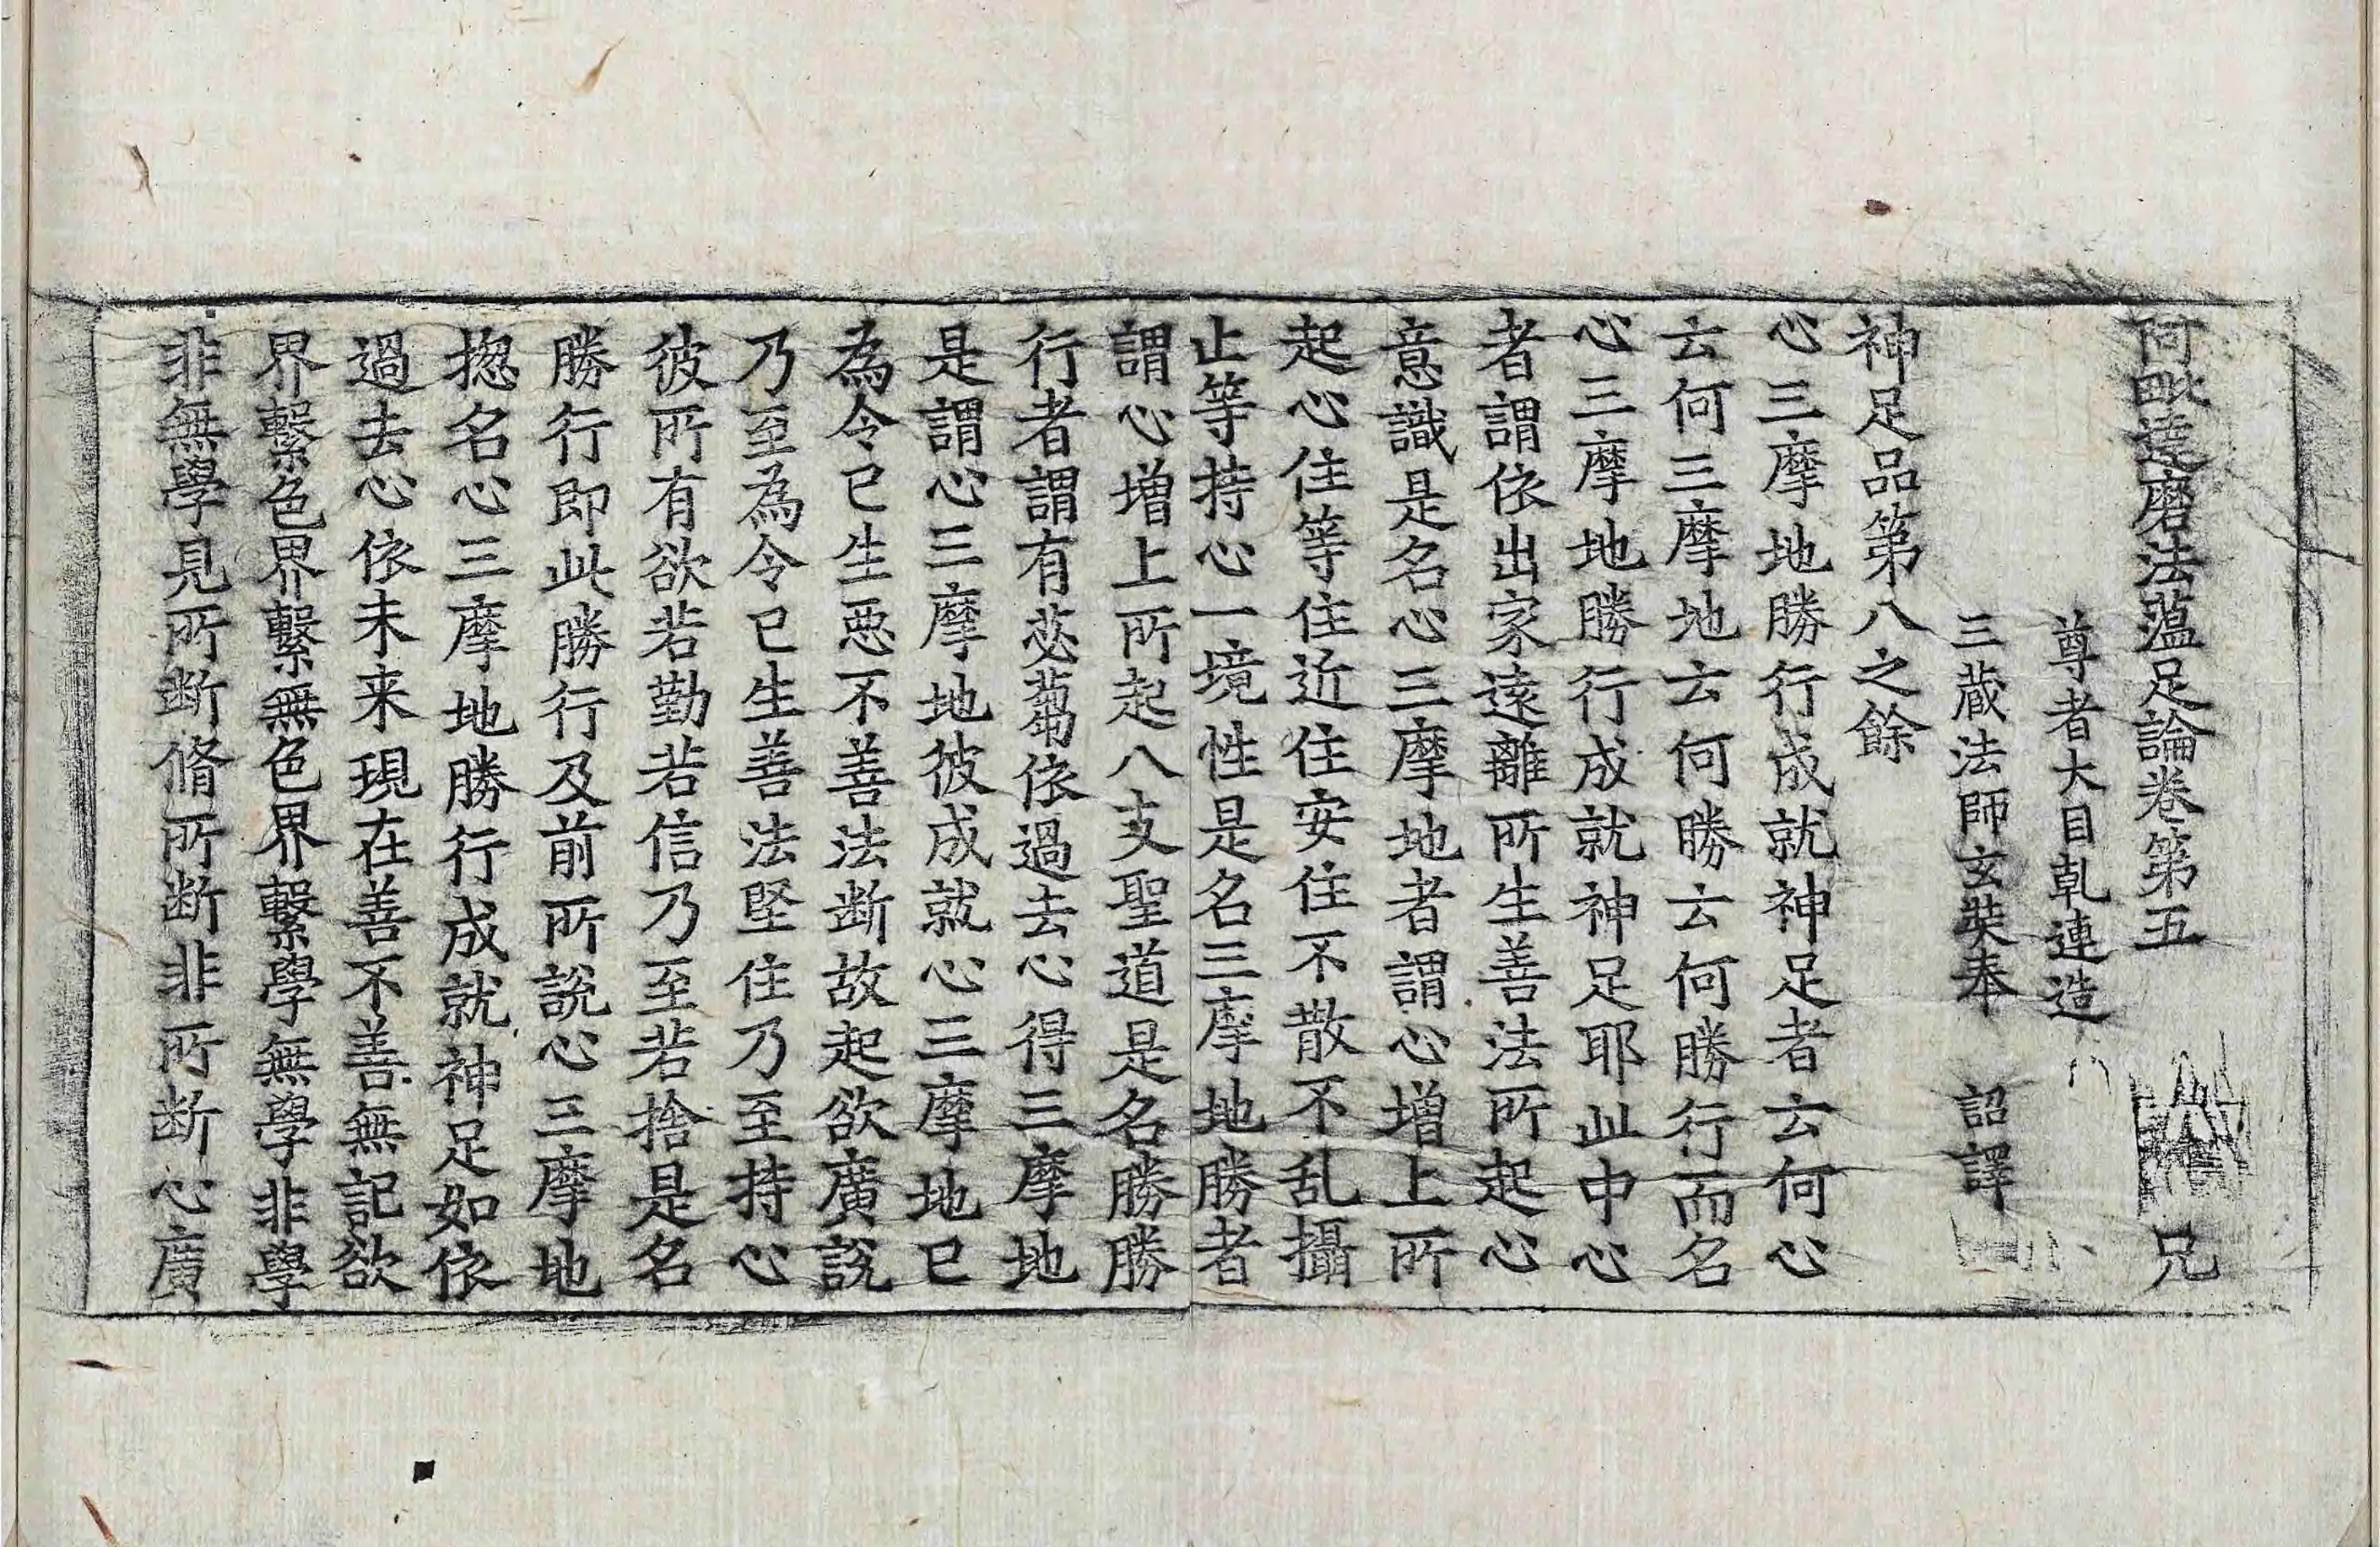 阿毗達磨法蘊足論卷第五 兄
尊者大目乹連造
三蔵法師玄奘奉 詔譯
神足品第八之餘
心三摩地勝行成就神足者云何心
云何三摩地云何勝云何勝行而名
心三摩地勝行成就神足耶此中心
者謂依出家遠離所生善法所起心
意識是名心三摩地者謂心增上所
起心住等住近住安住不散不乱攝
止等持心一境性是名三摩地勝者
謂心增上所起八支聖道是名勝勝
行者謂有苾蒭依過去心得三摩地
是謂心三摩地彼成就心三摩地已
為令已生惡不善法断故起欲廣說
乃至為令已生善法堅住乃至持心
彼所有欲若勤若信乃至若捨是名
勝行即此勝行及前所說心三摩地
捴名心三摩地勝行成就神足如依
過去心依未来現在善不善無記欲
界繫色界繫無色界繫學無學非學
非無學見所断脩所断非所断心廣